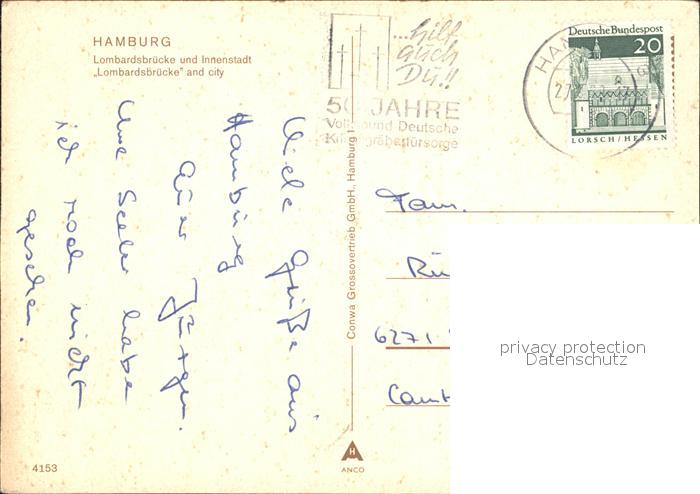 HAMBURG
Lombardsbrücke und Innenstadt
„Lombardsbrücke" and city
...hilf
auch
Du!!
50 JAHRE
Volksbund Deutsche
Kriegsgräberfürsorge
Deutsche Bundespost
20
LORSCH / HESSEN
HAM
Viele Grüße aus
Hamburg
Euer Jürgen.
Uwe Seeler habe
ich noch nicht
gesehen.
Conwa Grossovertrieb GmbH., Hamburg 1
Fam.
Rü
6271
Cam
privacy protection
Datenschutz
4153
H
ANCO